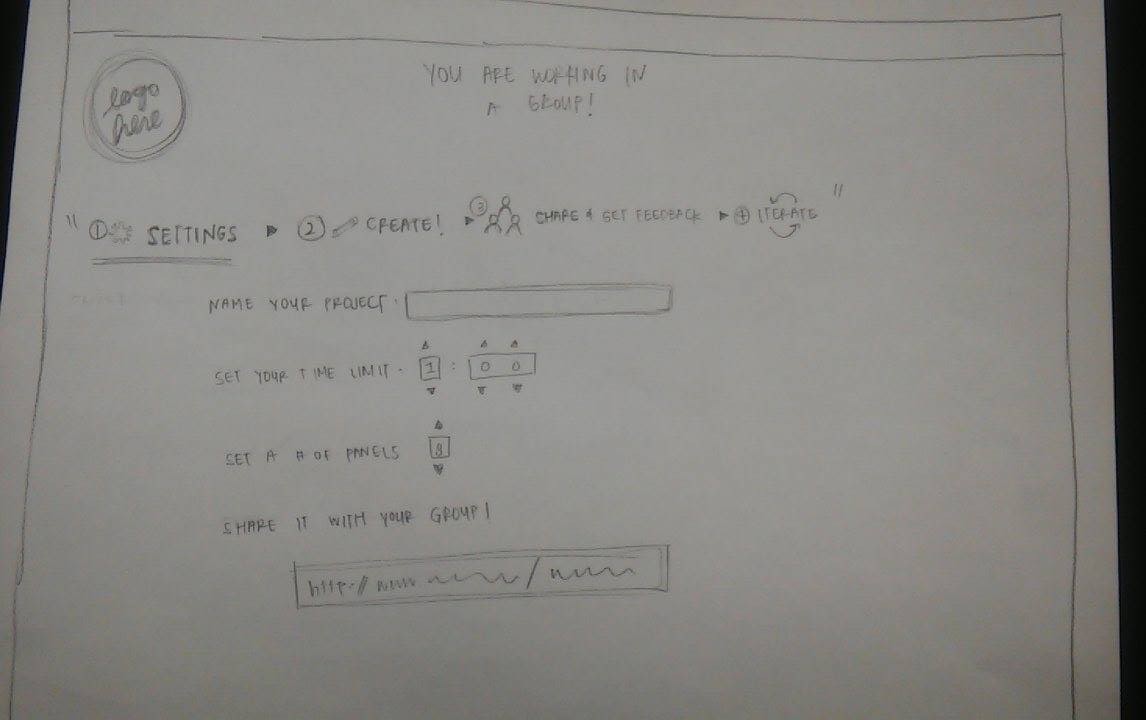 logo
here
YOU ARE WORKING IN
A GROUP!
" ① SETTINGS ▶ ② CREATE! ▶ ③ SHARE & GET FEEDBACK ▶ ④ ITERATE "
NAME YOUR PROJECT.
SET YOUR TIME LIMIT. 1 : 0 0
SET A # OF PANELS 8
SHARE IT WITH YOUR GROUP!
http://www /